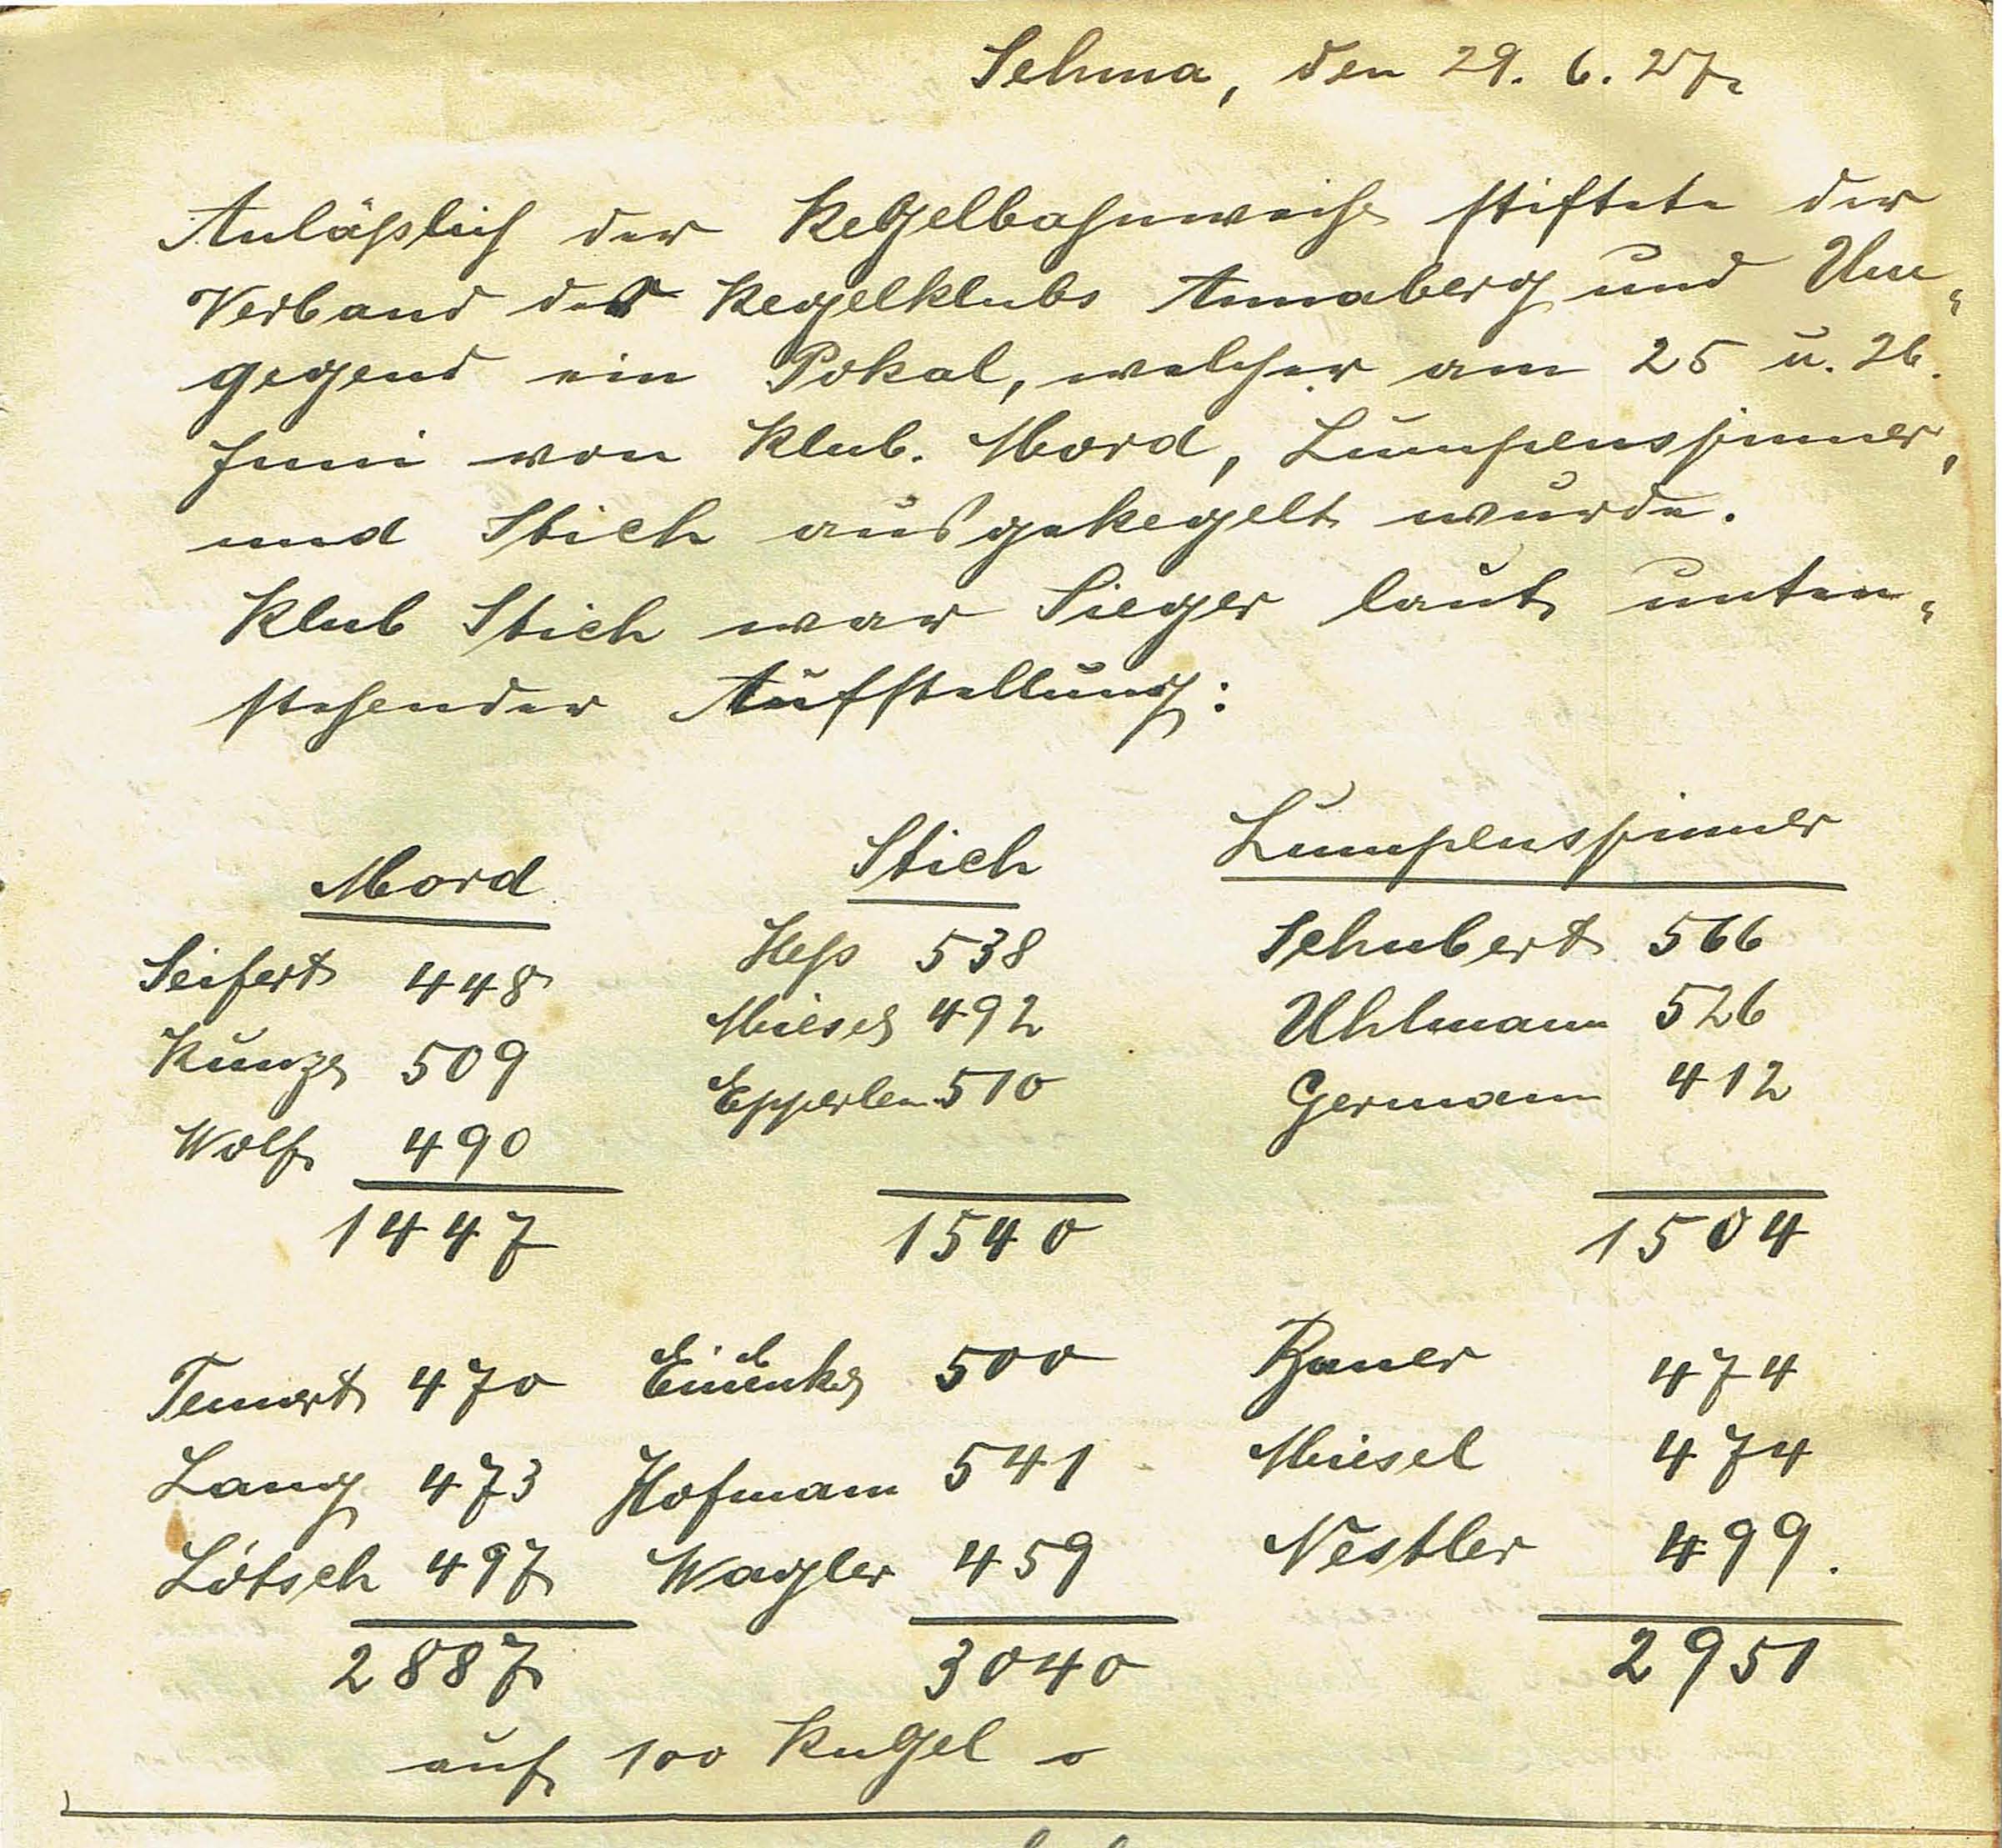 Sehma, den 29. 6. 27.
Anläßlich der Kegelbahnweihe stiftete der
Verband der Kegelklubs Annaberg und Um-
gegend ein Pokal, welcher am 25 u. 26.
Juni von Klub. Mord, Lumpenspinner,
und Stich ausgekegelt wurde.
Klub Stich war Sieger laut unten-
stehender Aufstellung:
Mord Stich Lumpenspinner
Seifert 448 Heß 538 Schubert 566
Kunze 509 Miesel 492 Uhlmann 526
Wolf 490 Epperlein 510 Germann 412
1447 1540 1504
470 500 474
Lang 473 Hofmann 541 Miesel 474
Lötsch 497 Wagler 459 Nestler 499.
2887 3040 2951
auf 100 Kugel